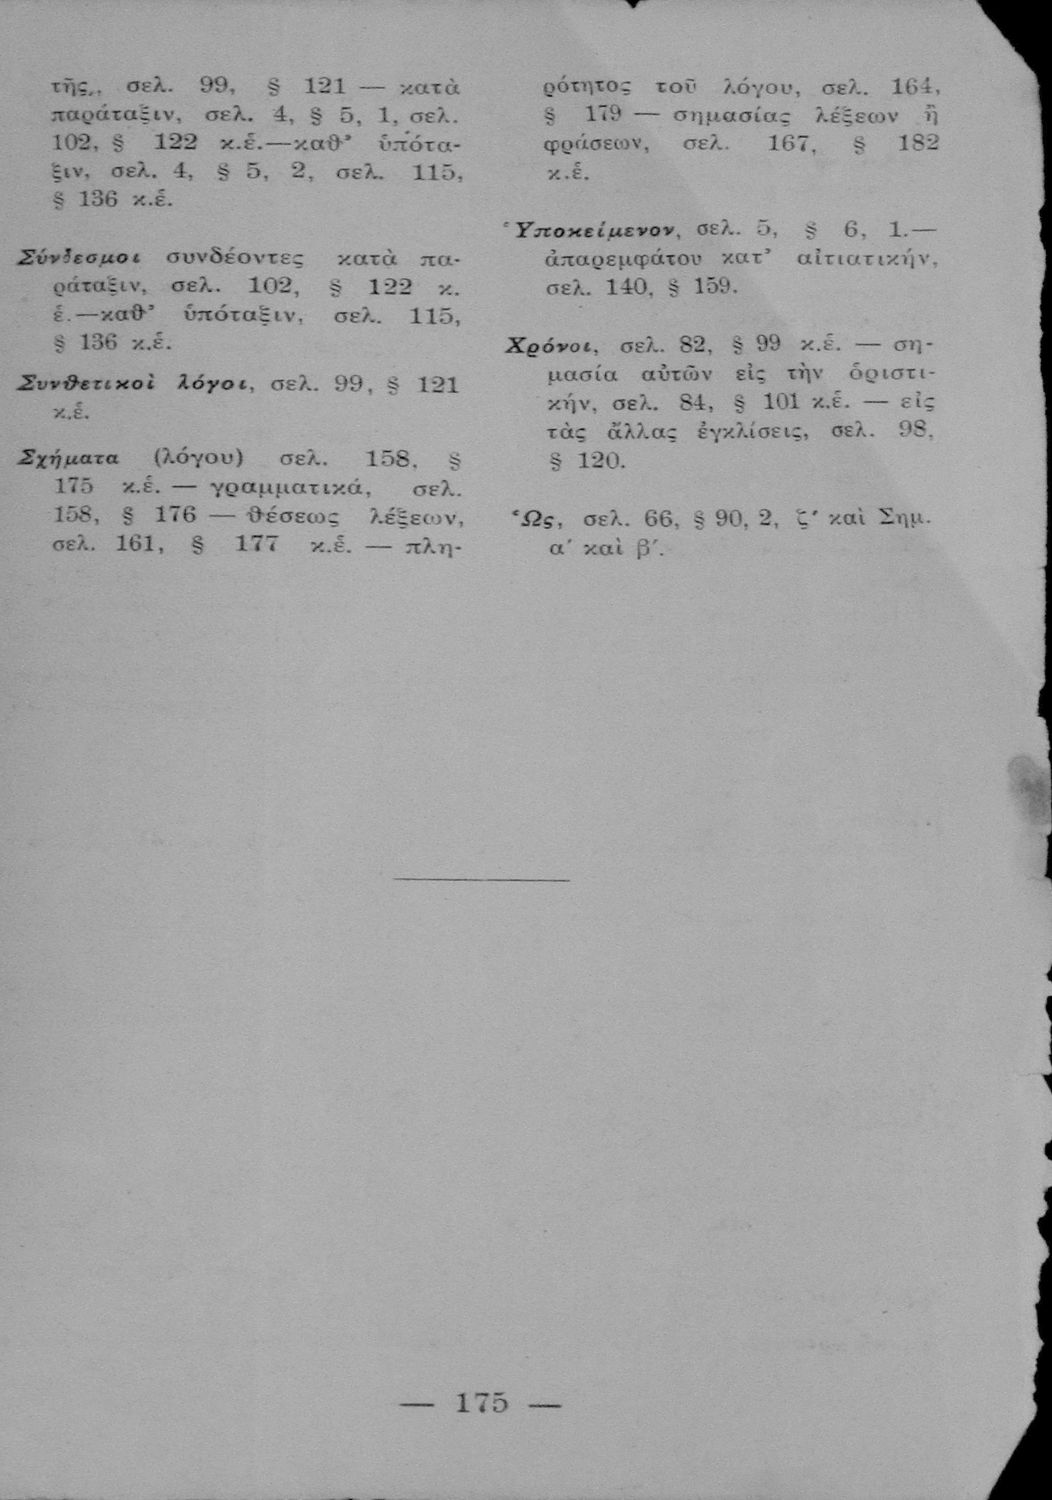 τῆς,, σελ. 99, § 121 — κατὰ
παράταξιν, σελ. 4, § 5, 1, σελ.
102, § 122 κ.ἑ.—καθ’ ὑπότα-
ξιν, σελ. 4, § 5, 2, σελ. 115,
§ 136 κ.ἑ.
Σύνδεσμοι συνδέοντες κατὰ πα-
ράταξιν, σελ. 102, § 122 κ.
ἑ.—καθ’ ὑπόταξιν, σελ. 115,
§ 136 κ.ἑ.
Συνθετικοὶ λόγοι, σελ. 99, § 121
κ.ἑ.
Σχήματα (λόγου) σελ. 158, §
175 κ.ἑ. — γραμματικά, σελ.
158, § 176 — θέσεως λέξεων,
σελ. 161, § 177 κ.ἑ. — πλη-
ρότητος τοῦ λόγου, σελ. 164,
§ 179 — σημασίας λέξεων ἢ
φράσεων, σελ. 167, § 182
κ.ἑ.
Ὑποκείμενον, σελ. 5, § 6, 1.—
ἀπαρεμφάτου κατ’ αἰτιατικήν,
σελ. 140, § 159.
Χρόνοι, σελ. 82, § 99 κ.ἑ. — ση-
μασία αὐτῶν εἰς τὴν ὁριστι-
κήν, σελ. 84, § 101 κ.ἑ. — εἰς
τὰς ἄλλας ἐγκλίσεις, σελ. 98,
§ 120.
Ὡς, σελ. 66, § 90, 2, ζ′ καὶ Σημ.
α′ καὶ β′.
— 175 —